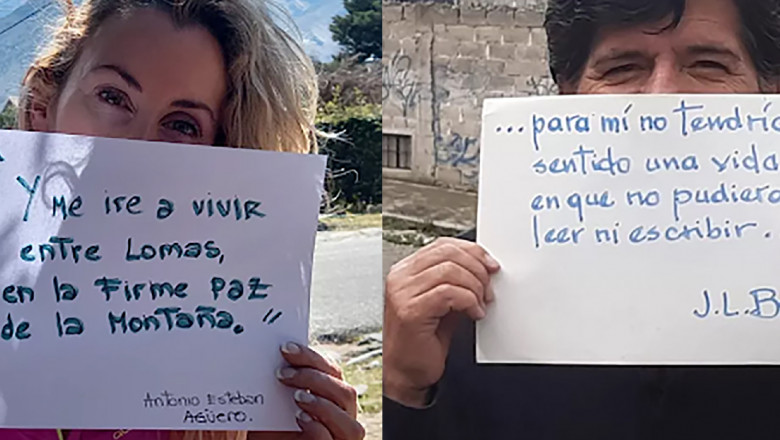 "Y Me ire a vivir
entre Lomas,
en la Firme Paz
de la Montaña."
Antonio Esteban
Agüero.
...para mí no tendría
sentido una vida
en que no pudiera
leer ni escribir.
J.L.B